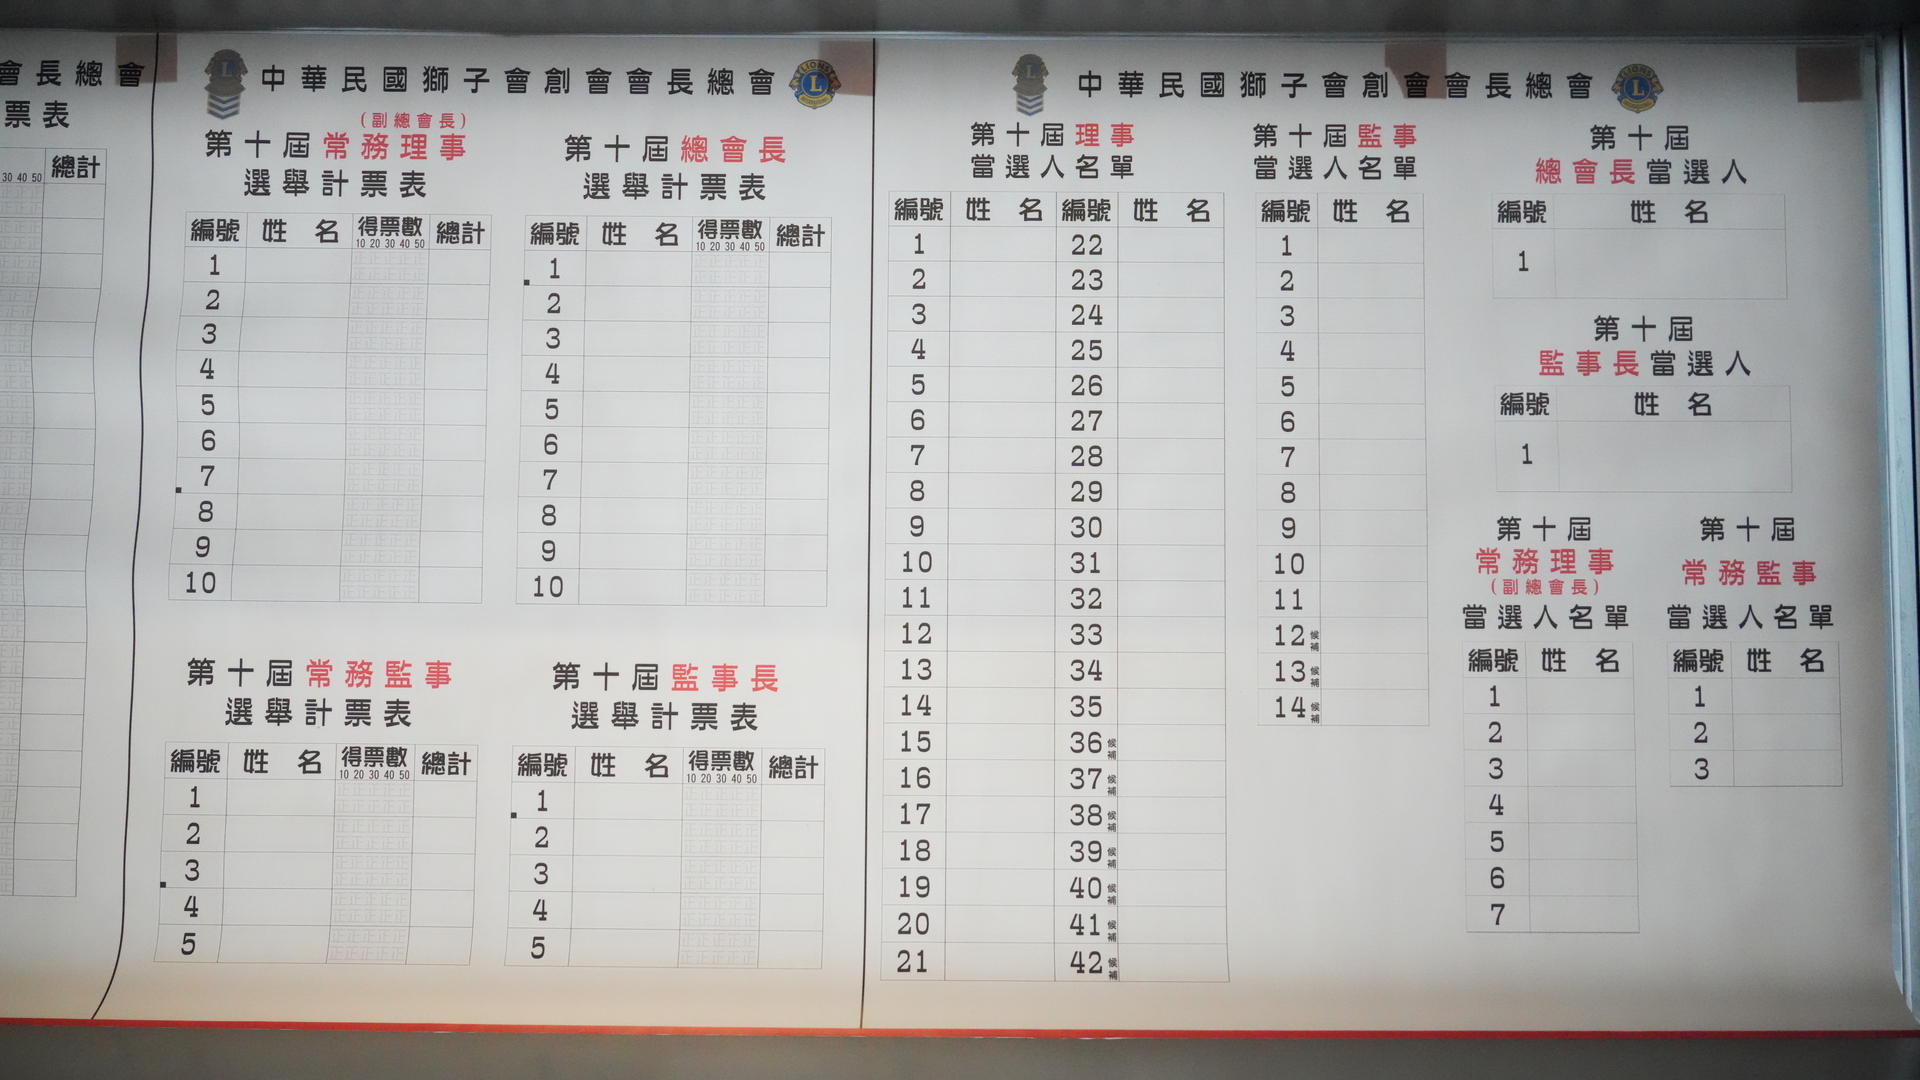 會長總會
票表
30 40 50 總計
中華民國獅子會創會會長總會
(副總會長)
第十屆常務理事
選舉計票表
編號 姓名 得票數 總計
10 20 30 40 50
1
2
3
4
5
6
7
8
9
10
第十屆總會長
選舉計票表
編號 姓名 得票數 總計
10 20 30 40 50
1
2
3
4
5
6
7
8
9
10
第十屆常務監事
選舉計票表
編號 姓名 得票數 總計
10 20 30 40 50
1
2
3
4
5
第十屆監事長
選舉計票表
編號 姓名 得票數 總計
10 20 30 40 50
1
2
3
4
5
中華民國獅子會創會會長總會
第十屆理事
當選人名單
編號 姓名 編號 姓名
1 22
2 23
3 24
4 25
5 26
6 27
7 28
8 29
9 30
10 31
11 32
12 33
13 34
14 35
15 36候補
16 37候補
17 38候補
18 39候補
19 40候補
20 41候補
21 42候補
第十屆監事
當選人名單
編號 姓名
1
2
3
4
5
6
7
8
9
10
11
12候補
13候補
14候補
第十屆
總會長當選人
編號 姓名
1
第十屆
監事長當選人
編號 姓名
1
第十屆
常務理事
(副總會長)
當選人名單
編號 姓名
1
2
3
4
5
6
7
第十屆
常務監事
當選人名單
編號 姓名
1
2
3